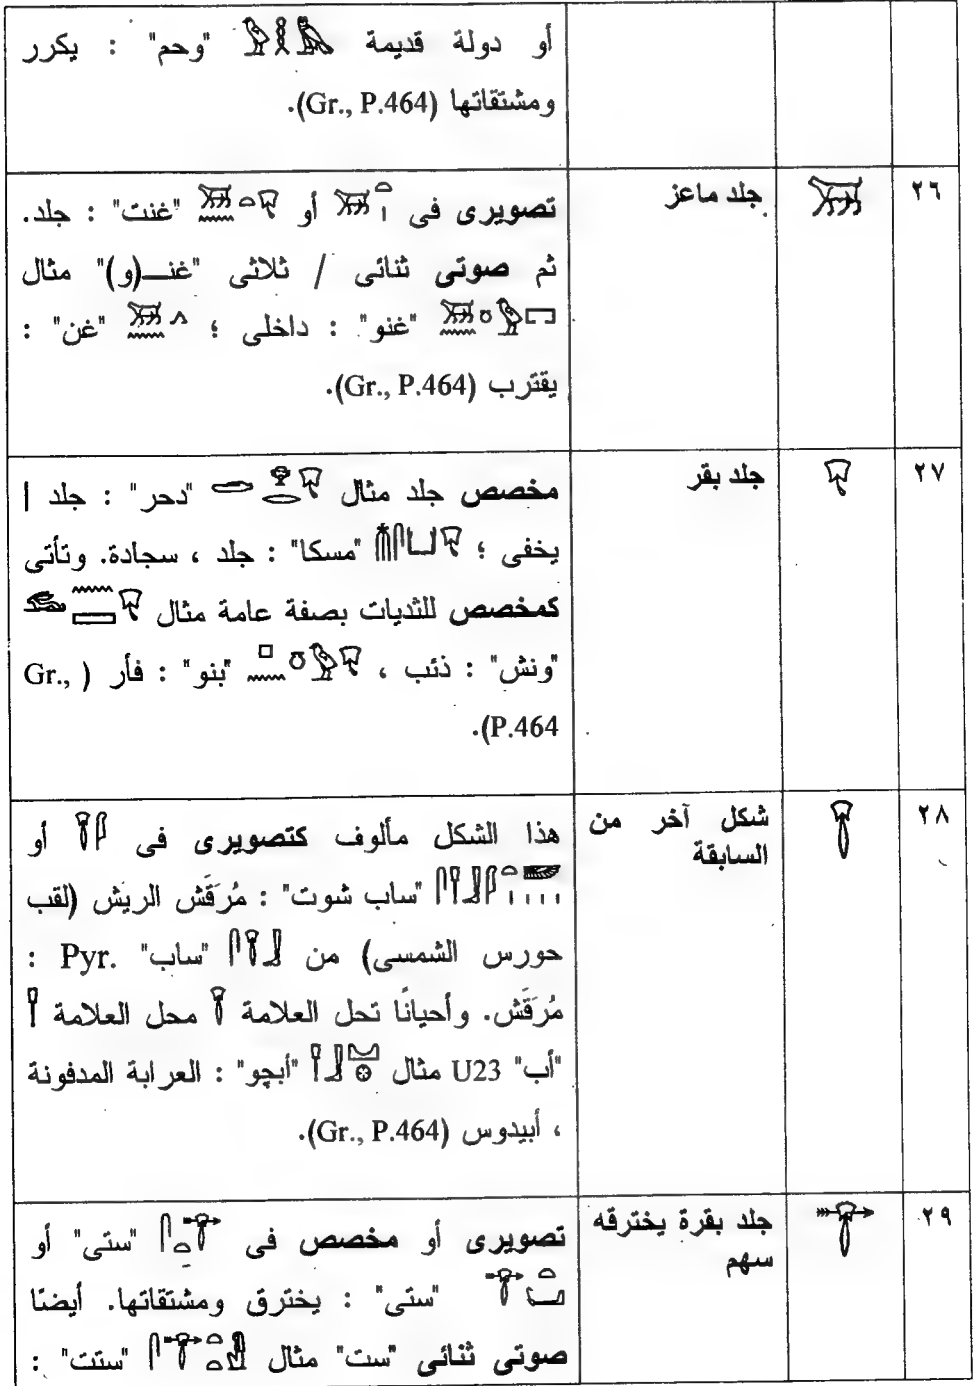 أو دولة قديمة "وحم" : يكرر
ومشتقاتها (Gr., P.464).
٢٦
جلد ماعز
تصويرى فى أو "غنت" : جلد.
ثم صوتى ثنائى / ثلاثى "غنـــ(و)" مثال
"غنو" : داخلى ؛ "غن" :
يقترب (Gr., P.464).
٢٧
جلد بقر
مخصص جلد مثال "دحر" : جلد |
يخفى ؛ "مسكا" : جلد ، سجادة. وتأتى
كمخصص للثديات بصفة عامة مثال
"ونش" : ذئب ، "بنو" : فأر ( Gr.,
P.464).
٢٨
شكل آخر من
السابقة
هذا الشكل مألوف كتصويرى فى أو
"ساب شوت" : مُرَقَّش الريش (لقب
حورس الشمسى) من "ساب" Pyr. :
مُرَقَّش. وأحيانًا تحل العلامة محل العلامة
"أب" U23 مثال "أبچو" : العرابة المدفونة
، أبيدوس (Gr., P.464).
٢٩
جلد بقرة يخترقه
سهم
تصويرى أو مخصص فى "ستى" أو
"ستى" : يخترق ومشتقاتها. أيضًا
صوتى ثنائى "ست" مثال "ستت" :